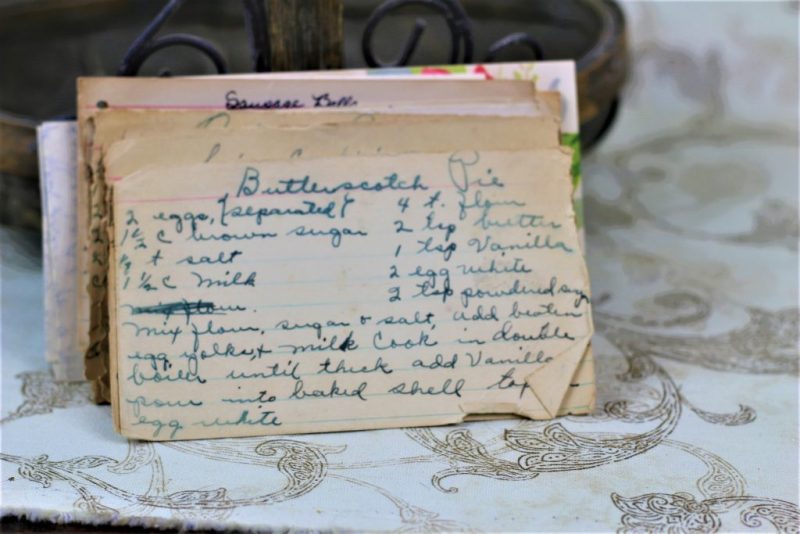 Sausage Balls
Butterscotch Pie
2 eggs, (separated) 4 t. flour
c brown sugar 2 tsp butter
t salt 1 tsp Vanilla
1 ½ C Milk 2 egg white
2 tsp powdered sug
Mix flour, sugar & salt, add beaten
egg yolks, + milk Cook in double
boiler until thick add Vanilla
pour into baked shell top
egg white